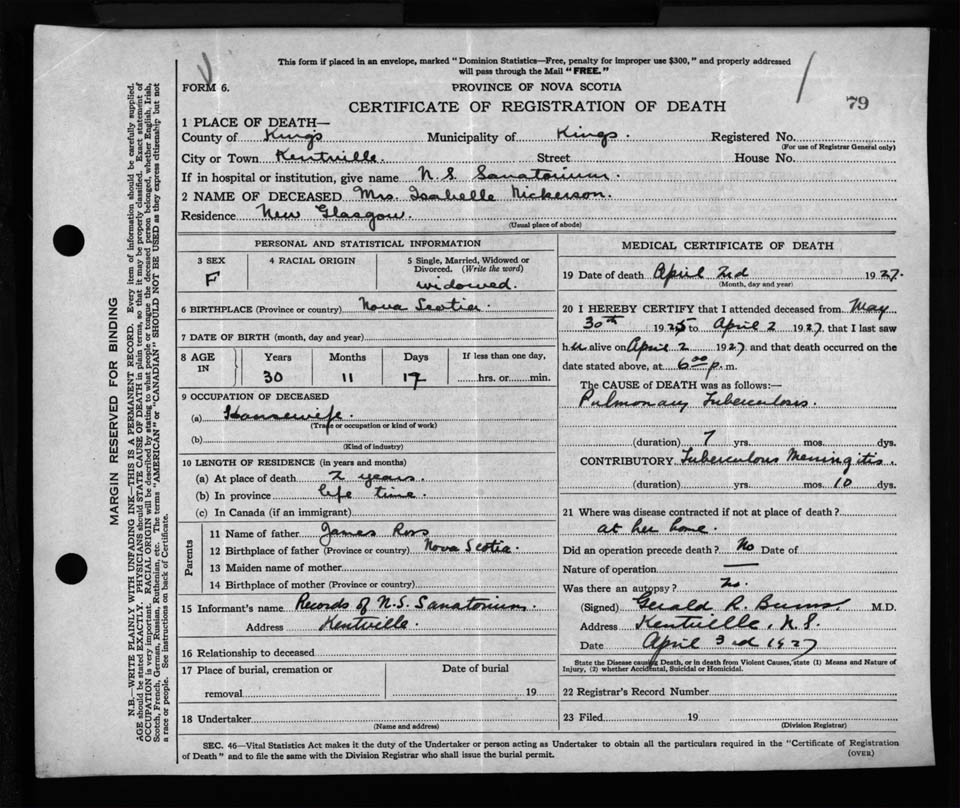 This form if placed in an envelope, marked "Dominion Statistics—Free, penalty for improper use $300," and properly addressed
will pass through the Mail "FREE."
FORM 6.
PROVINCE OF NOVA SCOTIA
79
CERTIFICATE OF REGISTRATION OF DEATH
1 PLACE OF DEATH—
County of Kings Municipality of Kings. Registered No.
(For use of Registrar General only)
City or Town Kentville. Street House No.
If in hospital or institution, give name N. S Sanatorium.
2 NAME OF DECEASED Mrs. Isabelle Nickerson.
Residence New Glasgow.
(Usual place of abode)
PERSONAL AND STATISTICAL INFORMATION
3 SEX
F
4 RACIAL ORIGIN
5 Single, Married, Widowed or
Divorced. (Write the word)
widowed.
6 BIRTHPLACE (Province or country) Nova Scotia.
7 DATE OF BIRTH (month, day and year)
8 AGE
IN
Years Months Days If less than one day,
30 11 17 hrs. or min.
9 OCCUPATION OF DECEASED
(a) Housewife.
(Trade or occupation or kind of work)
(b)
(Kind of industry)
10 LENGTH OF RESIDENCE (in years and months)
(a) At place of death 2 years.
(b) In province life time.
(c) In Canada (if an immigrant)
Parents
11 Name of father James Ross
12 Birthplace of father (Province or country) Nova Scotia.
13 Maiden name of mother
14 Birthplace of mother (Province or country)
15 Informant's name Records of N.S. Sanatorium.
Address Kentville.
16 Relationship to deceased
17 Place of burial, cremation or Date of burial
removal 19
18 Undertaker
(Name and address)
MEDICAL CERTIFICATE OF DEATH
19 Date of death April 2nd 1927.
(Month, day and year)
20 I HEREBY CERTIFY that I attended deceased from May
30th 1925 to April 2 1927, that I last saw
her alive on April 2 1927 and that death occurred on the
date stated above, at 6.00 p. m.
The CAUSE OF DEATH was as follows:—
Pulmonary Tuberculosis.
(duration) 7 yrs. mos. dys.
CONTRIBUTORY Tuberculous Meningitis.
(duration) yrs. mos. 10 dys.
21 Where was disease contracted if not at place of death?
at her home.
Did an operation precede death? No Date of
Nature of operation —
Was there an autopsy? No.
(Signed) Gerald R. Burns. M.D.
Address Kentville, N.S.
Date April 3rd 1927
State the Disease causing Death, or in death from Violent Causes, state (1) Means and Nature of
Injury, (2) whether Accidental, Suicidal or Homicidal.
22 Registrar's Record Number
23 Filed 19
(Division Registrar)
SEC. 46—Vital Statistics Act makes it the duty of the Undertaker or person acting as Undertaker to obtain all the particulars required in the "Certificate of Registration
of Death" and to file the same with the Division Registrar who shall issue the burial permit.
(OVER)
MARGIN RESERVED FOR BINDING
N.B.—WRITE PLAINLY WITH UNFADING INK—THIS IS A PERMANENT RECORD. Every item of information should be carefully supplied.
AGE should be stated EXACTLY. PHYSICIANS should STATE CAUSE OF DEATH in plain terms, so that it may be properly classified. Exact statement of
OCCUPATION is very important. RACIAL ORIGIN will be described by stating to what people or tongue the deceased person belonged, whether English, Irish,
Scotch, French, German, Russian, Ruthenian, etc. The terms "AMERICAN" or "CANADIAN" SHOULD NOT BE USED as they express citizenship but not
a race or people. See instructions on back of Certificate.